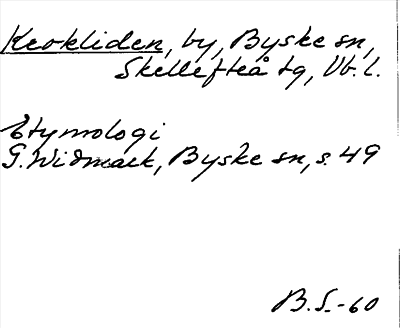 Krokliden, by, Byske sn,
Skellefteå tg, Vb. l.
Etymologi
G. Widmark, Byske sn, s. 49
B. S. -60